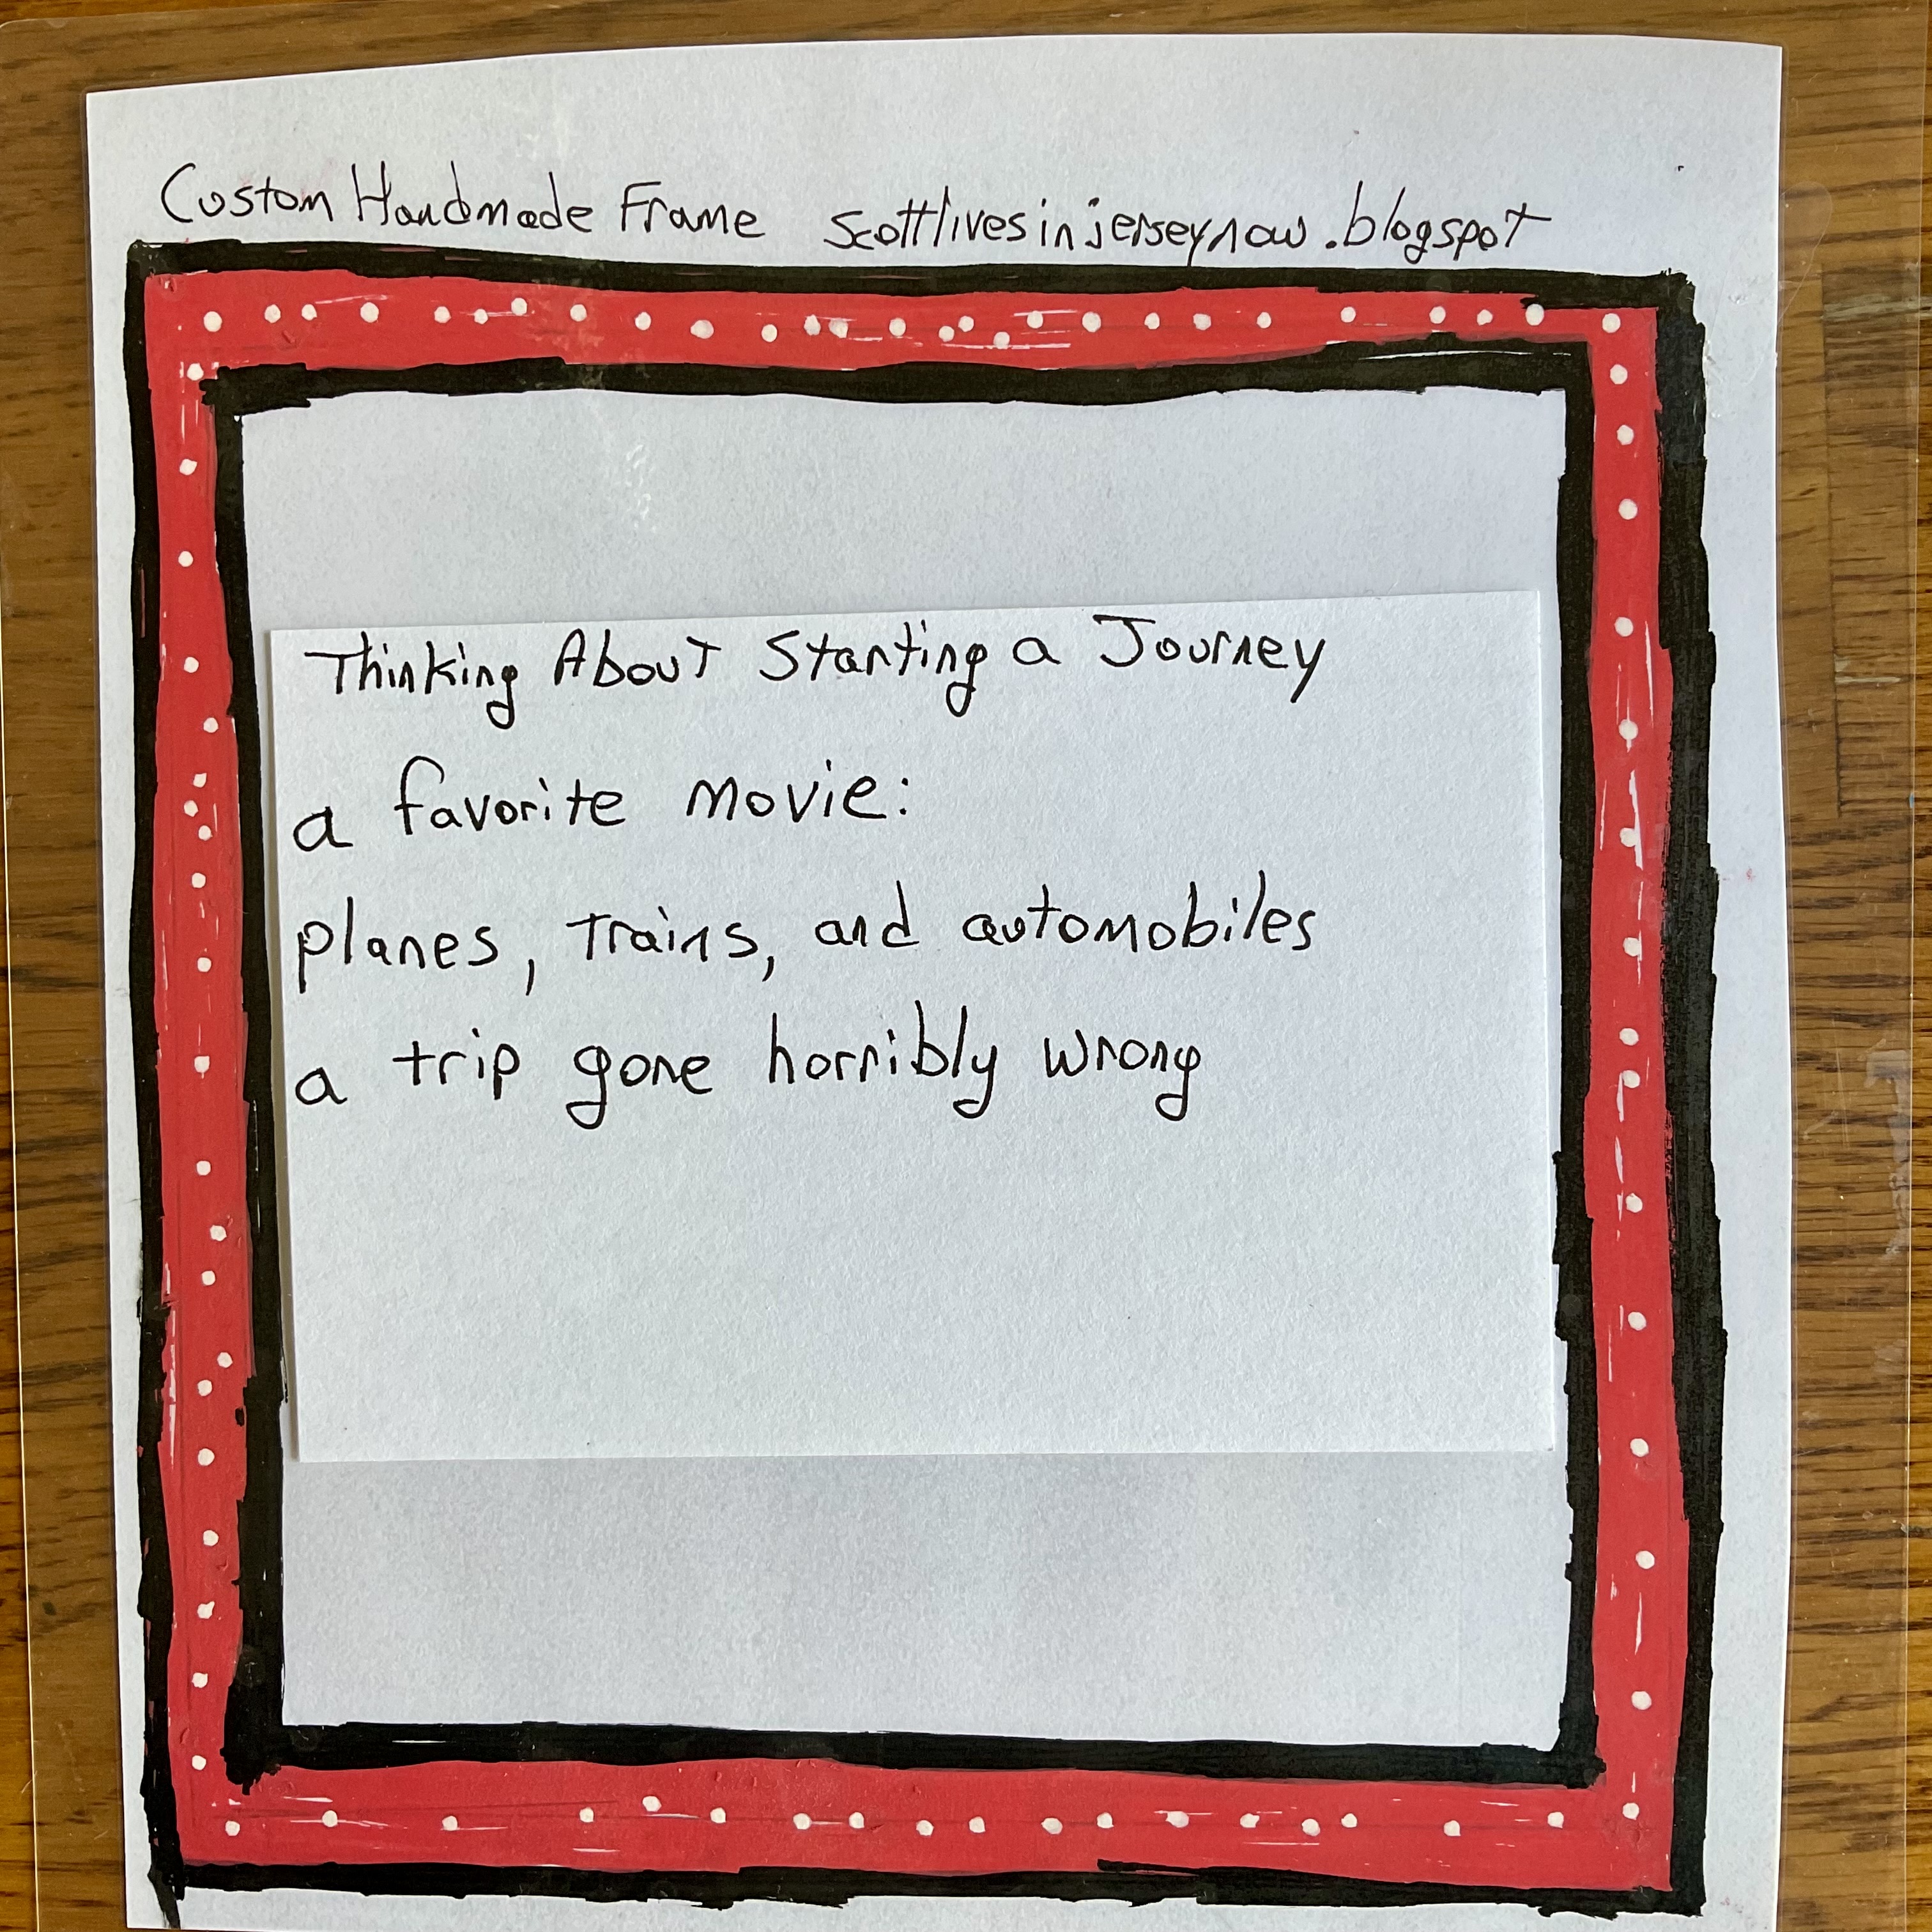 Custom Handmade Frame scottlivesinjerseynow.blogspot
Thinking About Starting a Journey
a favorite movie:
planes, trains, and automobiles
a trip gone horribly wrong